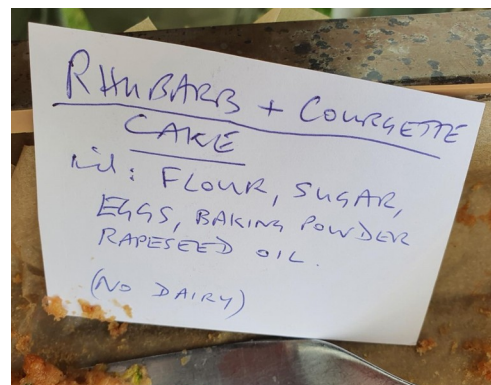 RHUBARB + COURGETTE
CAKE
FLOUR, SUGAR,
EGGS, BAKING POWDER
RAPESEED OIL.
(NO DAIRY)